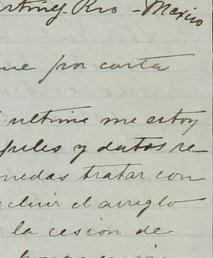 Rio - Mexico
por carta
ultime me estoy
y datos re
puedas tratar con
cluir el arreglo
la cesion de